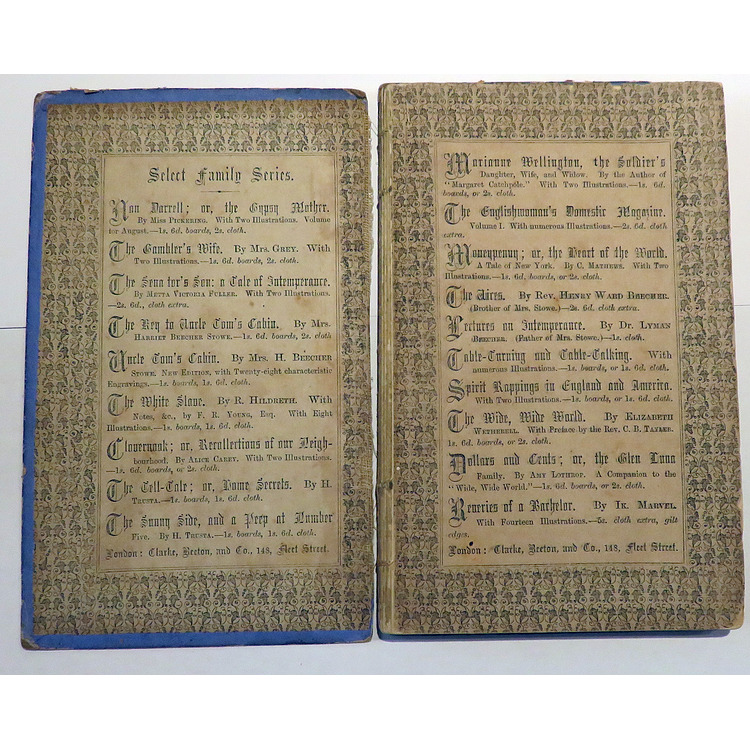 Select Family Series.
Nan Darrell; or, the Gypsy Mother.
By Miss Pickering. With Two Illustrations. Volume
for August.—1s. 6d. boards, 2s. cloth.
The Gambler's Wife. By Mrs. Grey. With
Two Illustrations.—1s. 6d. boards, 2s. cloth.
The Senator's Son: a Tale of Intemperance.
By Metta Victoria Fuller. With Two Illustrations.
—2s. 6d., cloth extra.
The Key to Uncle Tom's Cabin. By Mrs.
Harriet Beecher Stowe.—1s. 6d. boards, 2s. cloth
Uncle Tom's Cabin. By Mrs. H. Beecher
Stowe. New Edition, with Twenty-eight characteristic
Engravings.—1s. boards, 1s. 6d. cloth.
The White Slave. By R. Hildreth. With
Notes, &c., by F. R. Young, Esq. With Eight
Illustrations.—1s. boards, 1s. 6d. cloth.
Clovernook; or, Recollections of our Neigh-
bourhood. By Alice Carey. With Two Illustrations.
—1s. 6d. boards, or 2s. cloth.
The Tell-Tale; or, Home Secrets. By H.
Trusta.—1s. boards, 1s. 6d. cloth.
The Sunny Side, and a Peep at Number
Five. By H. Trusta.—1s. boards, 1s. 6d. cloth.
London: Clarke, Beeton, and Co., 148, Fleet Street.
Marianne Wellington, the Soldier's
Daughter, Wife, and Widow. By the Author of
"Margaret Catchpole." With Two Illustrations.—1s. 6d.
boards, or 2s. cloth.
The Englishwoman's Domestic Magazine.
Volume I. With numerous Illustrations.—2s. 6d. cloth
extra.
Moneypenny; or, the Heart of the World.
A Tale of New York. By C. Mathews. With Two
Illustrations.—1s. 6d. boards, or 2s. cloth.
The Vices. By Rev. Henry Ward Beecher.
(Brother of Mrs. Stowe.)—2s. 6d. cloth extra.
Lectures on Intemperance. By Dr. Lyman
Beecher. (Father of Mrs. Stowe.)—1s. cloth.
Table-Turning and Table-Talking. With
numerous Illustrations.—1s. boards, or 1s. 6d. cloth.
Spirit Rappings in England and America.
With Two Illustrations.—1s. boards, or 1s. 6d. cloth.
The Wide, Wide World. By Elizabeth
Wetherell. With Preface by the Rev. C. B. Tayler.
1s. 6d. boards, or 2s. cloth.
Dollars and Cents; or, the Glen Luna
Family. By Amy Lothrop. A Companion to the
"Wide, Wide World."—1s. 6d. boards, or 2s. cloth.
Reveries of a Bachelor. By Ik. Marvel.
With Fourteen Illustrations.—5s. cloth extra, gilt
edges.
London: Clarke, Beeton, and Co., 148, Fleet Street.